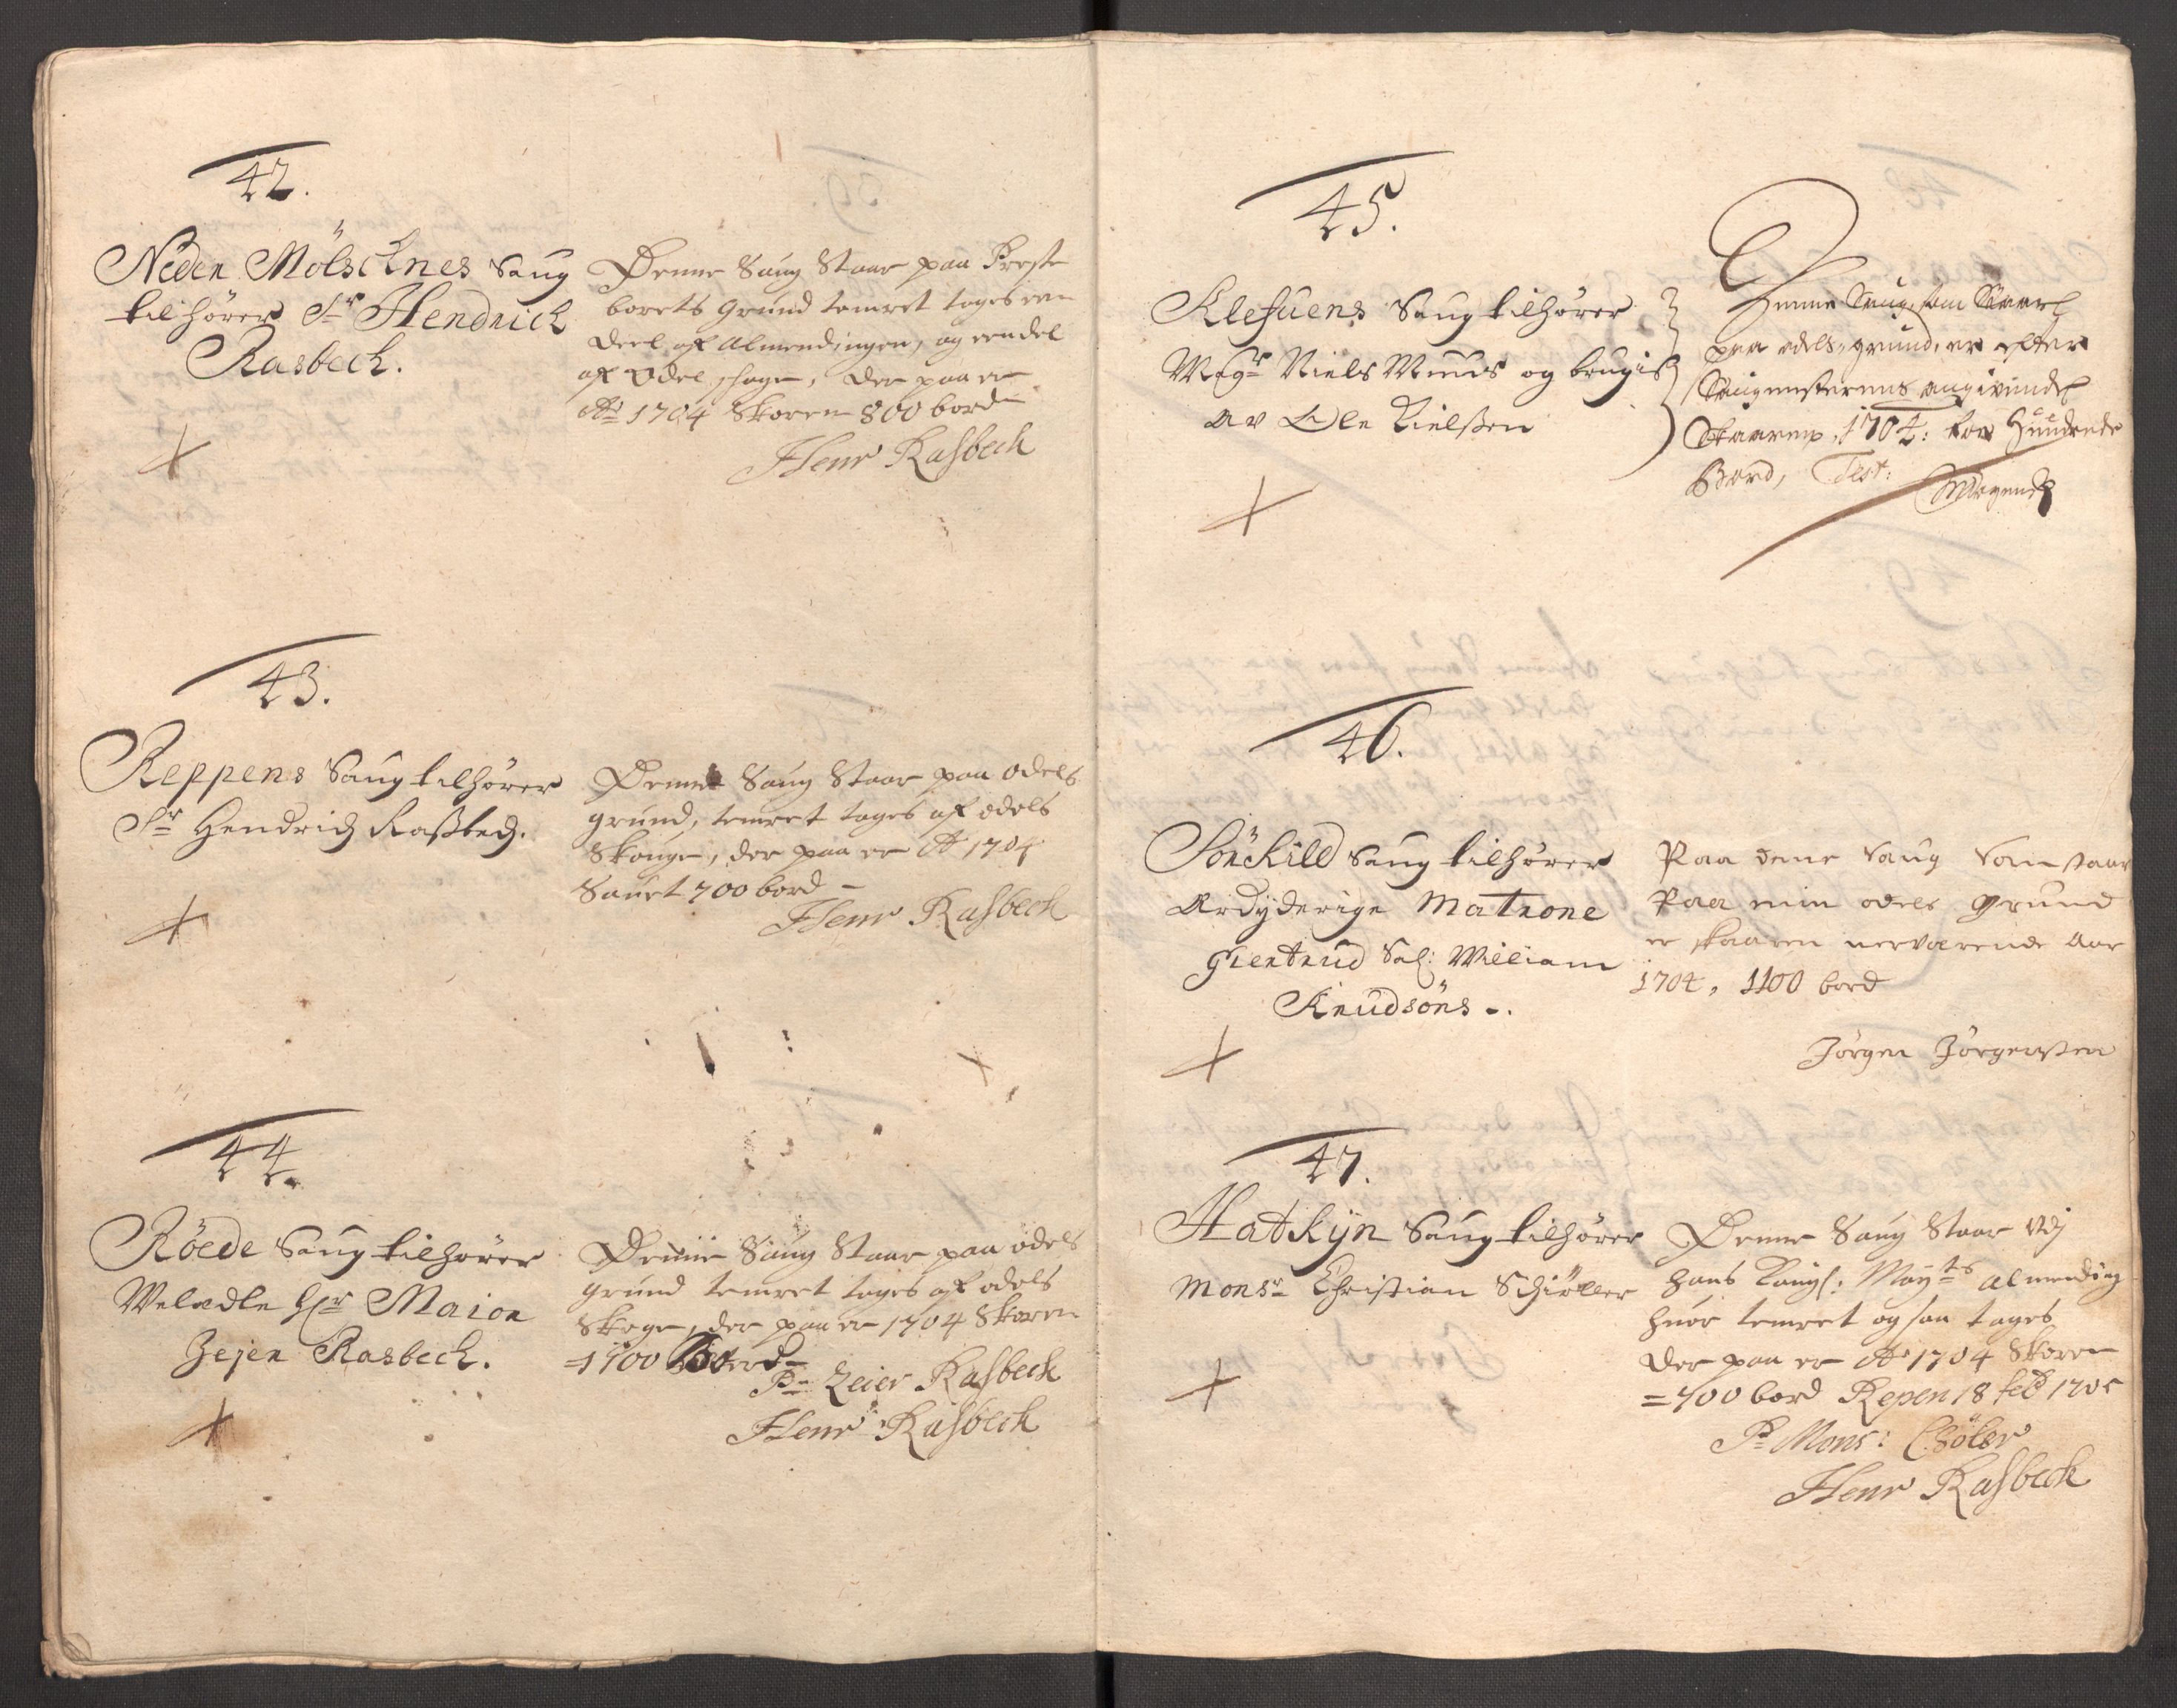 42.
Neden Mölschnes Saug
tilhörer Sr Hendrich
Rasbech.
Denne Saug Staar paa Preste
borets grund temret tages een
Deel af Almendingen, og een del
af Odel skoge, Der paa er
Ao 1704 Skoren 800 bord
Henr Rasbech
43.
Reppens Saug tilhörer
Sr Hendrich Rassbech.
Denne Saug Staar paa odels
grund, temret tages af odels
Skouge, der paa er Ao 1704
Sauet 700 bord -
Henr Rasbech
44.
Röede Saug tilhörer
Velædle Hr Maior
Zejer Rasbech.
Denne Saug Staar paa odels
grund temret tages af odels
Skoge, der paa er 1704 Skoren
=1700 Bord-
Pr Zeier Rasbech
Henr Rasbech
45.
Klefuens Saug tilhörer
Magr Niels Muus og brugis
av Ole Nielssen
Denne Saug, som Staar
paa odels, grund, er efter
Saugmesterens angivende
Skaaren, 1704: Hundrede
Bord, Test:
46.
Sönkild Saug tilhörer
Ærdyderige Matrone
Giertrud Sal: William
Knudsöns -.
Paa denne Saug som staar
Paa min odels grund
er skaaren nerværende aar
1704, 1100 bord
Jörgen Jörgenssen
47.
Hatkijn Saug tilhörer
Monsr Christian Schiöller
Denne Saug Staar vdj
hans Kongl: Mayts almending
huor temret og saa tages
der paa er Ao 1704 Skoren
=700 bord Repen 18 feb 1705
Pr Mons: Chöler
Henr Rasbech